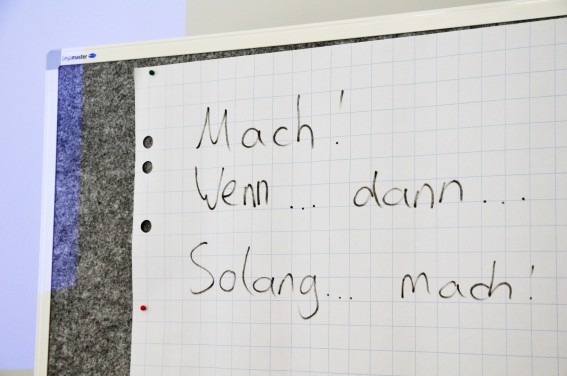 legamaster
Mach!
Wenn... dann...
Solang... mach!